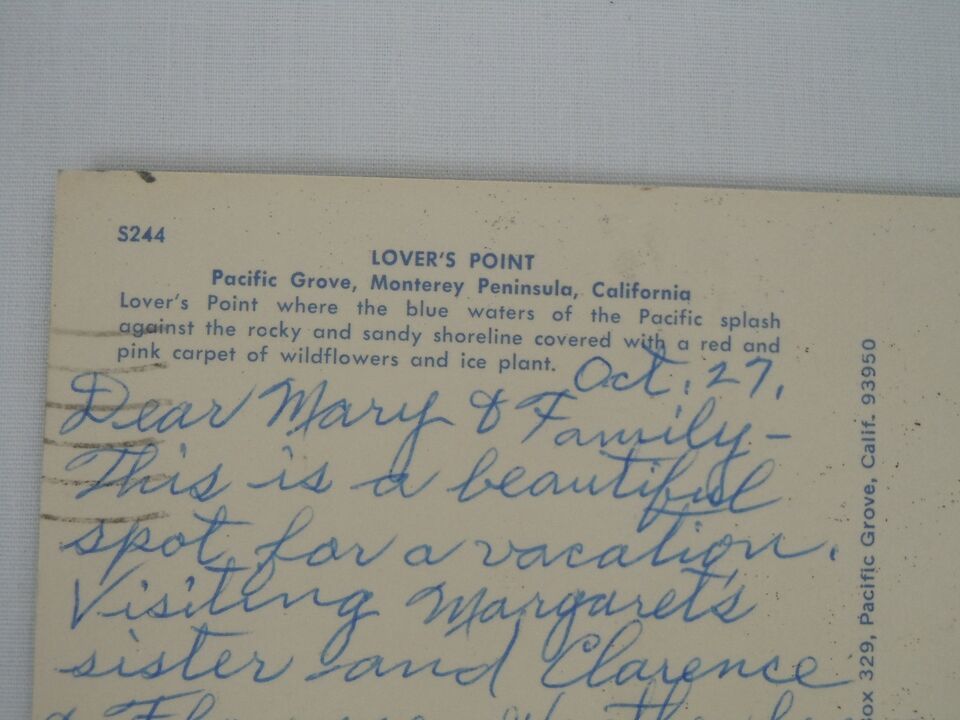 S244
LOVER'S POINT
Pacific Grove, Monterey Peninsula, California
Lover's Point where the blue waters of the Pacific splash
against the rocky and sandy shoreline covered with a red and
pink carpet of wildflowers and ice plant.
Oct. 27,
Dear Mary & Family-
This is a beautiful
spot for a vacation.
Visiting Margaret's
sister and Clarence
ox 329, Pacific Grove, Calif. 93950